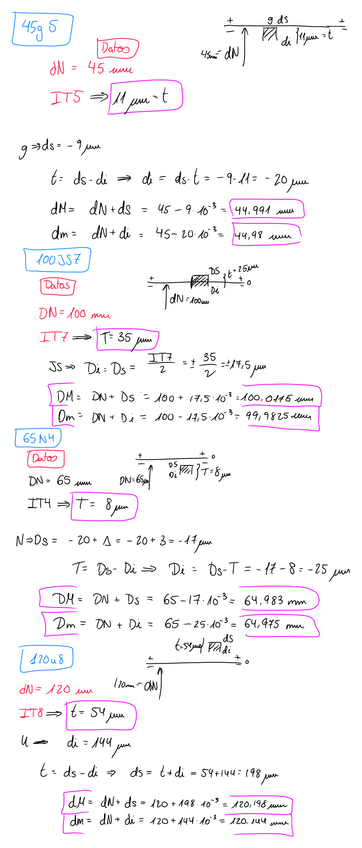 45g5
g ds
di
11 μm = t
45mm = dN
Datos
dN = 45 mm
IT5 ⇒ 11 μm = t
g ⇒ ds = - 9 μm
t = ds - di ⇒ di = ds - t = - 9 - 11 = - 20 μm
dM = dN + ds = 45 - 9·10⁻³ = 44,991 mm
dm = dN + di = 45 - 20·10⁻³ = 44,98 mm
100JS7
Datos
DS
Di
t = 25μm
dN = 100mm
DN = 100 mm
IT7 ⇒ T = 35 μm
JS ⇒ Di = Ds = IT7/2 = ± 35/2 = ±17,5 μm
DM = DN + Ds = 100 + 17,5·10⁻³ = 100,0175 mm
Dm = DN + Di = 100 - 17,5·10⁻³ = 99,9825 mm
65N4
Datos
DN = 65 mm
DN = 65μm
DS
Di
T = 8μm
IT4 ⇒ T = 8 μm
N ⇒ Ds = - 20 + Δ = - 20 + 3 = - 17 μm
T = Ds - Di ⇒ Di = Ds - T = - 17 - 8 = - 25 μm
DM = DN + Ds = 65 - 17·10⁻³ = 64,983 mm
Dm = DN + Di = 65 - 25·10⁻³ = 64,975 mm
120u8
t = 54μm
ds
di
120mm = dN
dN = 120 mm
IT8 ⇒ t = 54 μm
u → di = 144 μm
t = ds - di ⇒ ds = t + di = 54 + 144 = 198 μm
dM = dN + ds = 120 + 198·10⁻³ = 120,198 mm
dm = dN + di = 120 + 144·10⁻³ = 120.144 mm